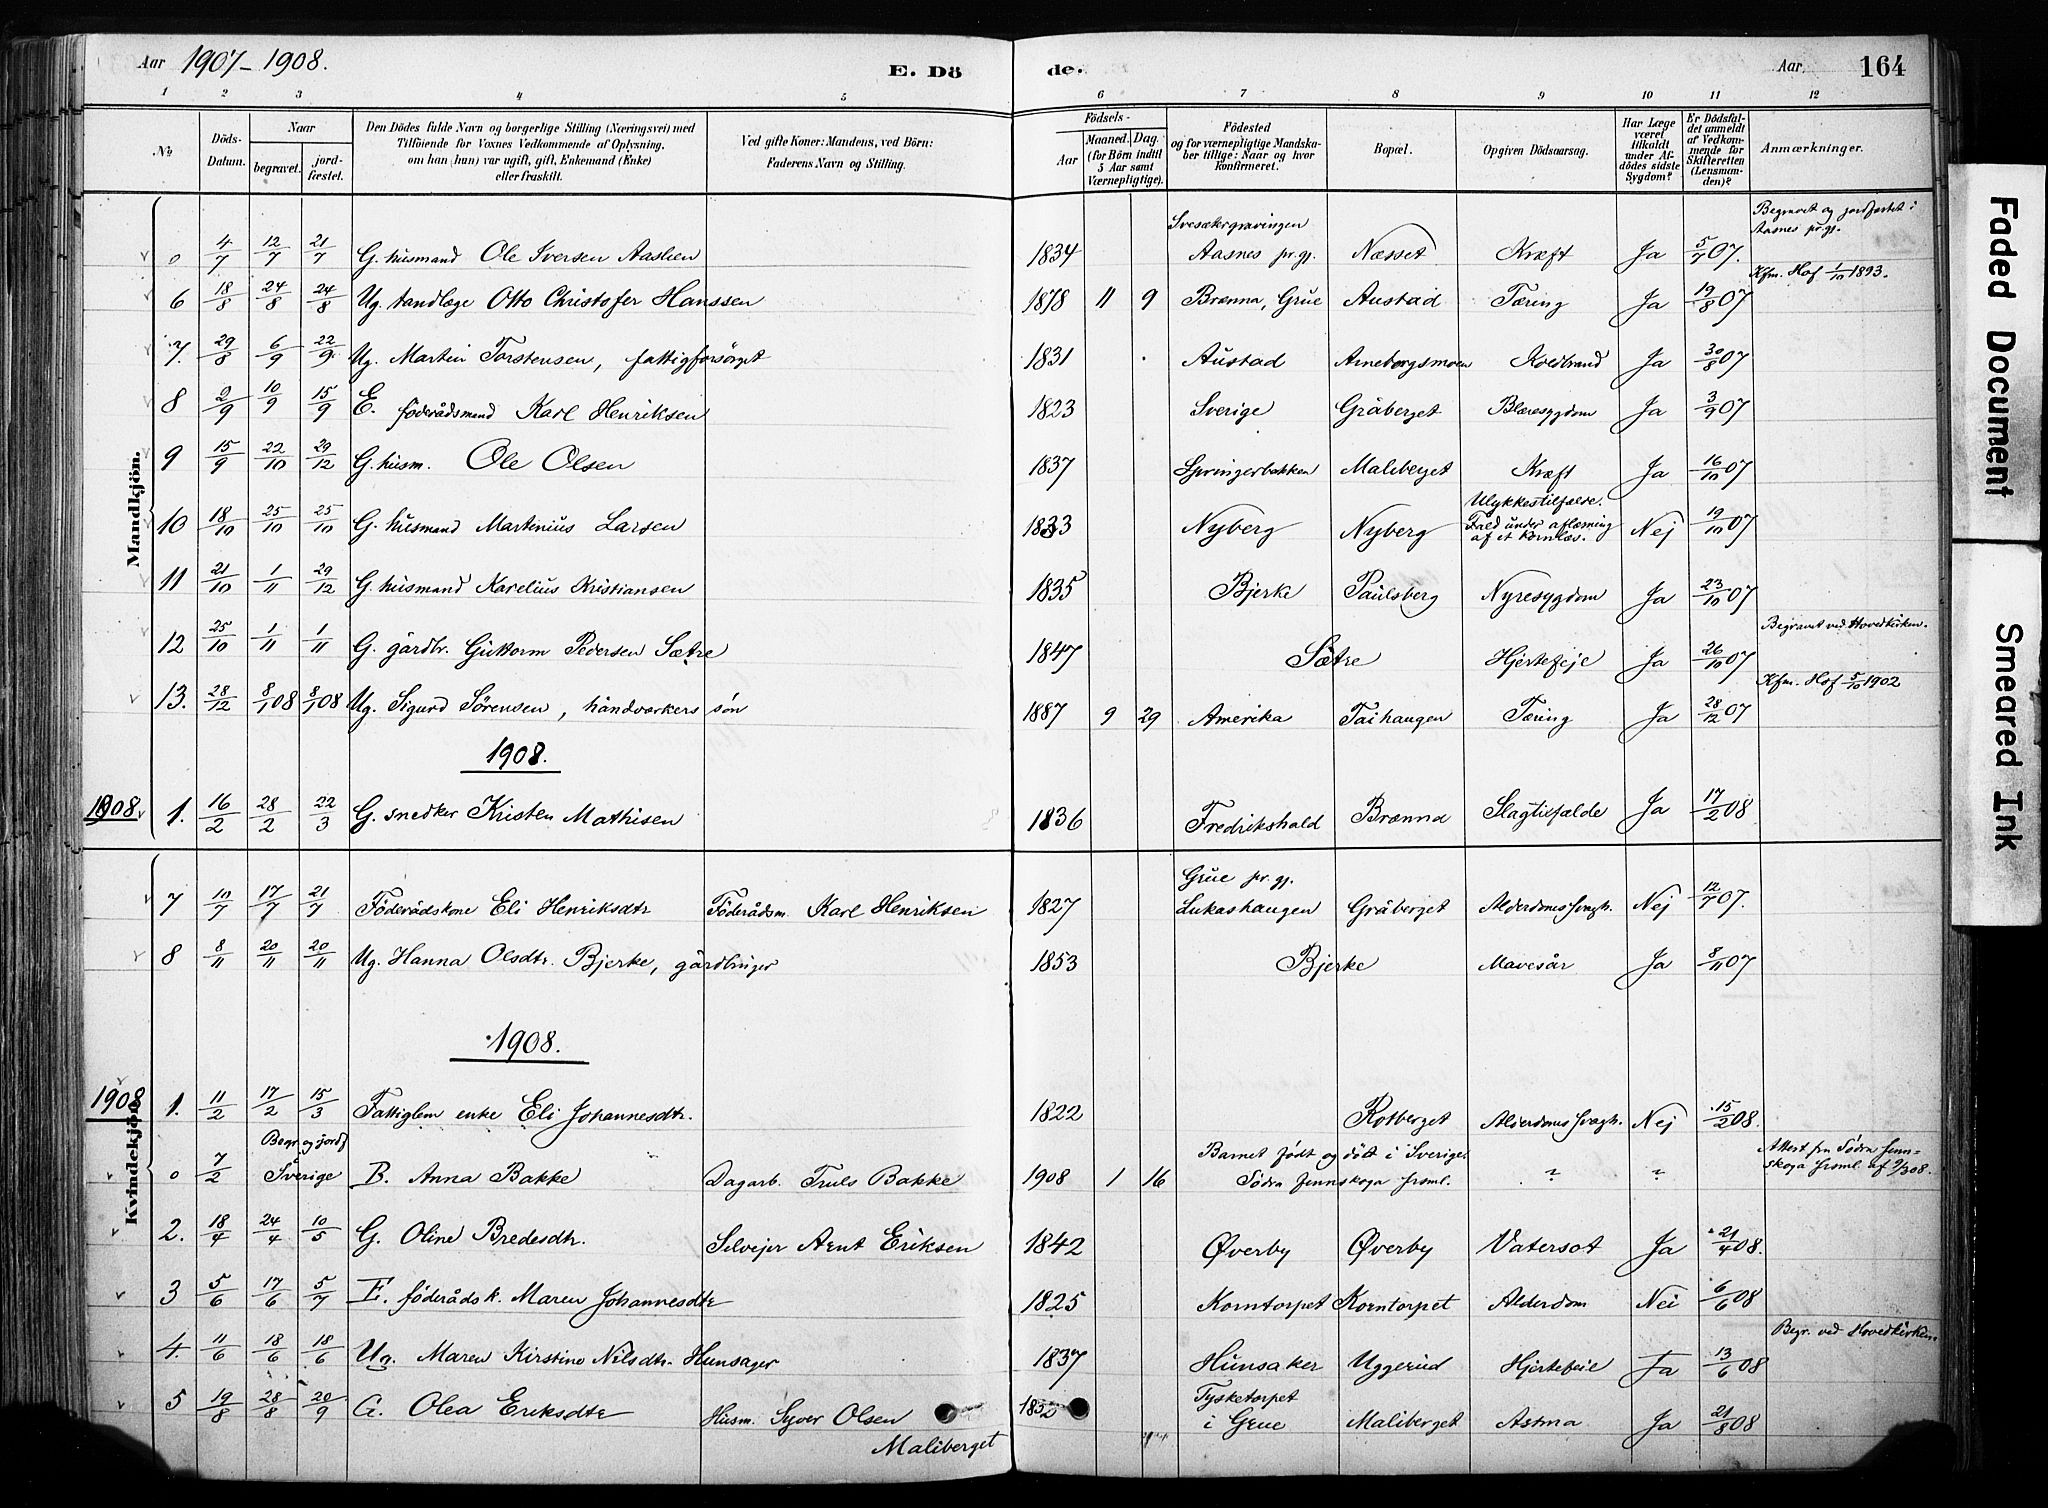 Aar 1907-1908. E. Dö de. Aar 164
1 2 3 4 5 6 7 8 9 10 11 12
No Döds-Datum. Naar begravet. jord-fæstet. Den Dödes fulde Navn og borgerlige Stilling (Næringsvei) med Tilföiende for Voxnes Vedkommende af Oplysning, om han (hun) var ugift, gift, Enkemand (Enke) eller fraskilt. Ved gifte Koner: Mandens, ved Börn: Faderens Navn og Stilling. Födsels- Aar Maaned. Dag. (for Börn indtil 5 Aar samt Værnepligtige). Födested og for værnepligtige Mandskaber tillige: Naar og hvor Konfirmeret. Bopæl. Opgiven Dödsaarsag. Har Læge været tilkaldt under Afdödes sidste Sygdom? Er Dödsfaldet anmeldt af Vedkommende for Skifteretten (Lensmanden)? Anmærkninger.
Mandkjön.
0 4/7 12/7 21/7 G. husmand Ole Iversen Aaslien 1834 Svesækrgravingen Aasnes pr.gj. Næsset Kræft Ja 5/7 07. Begravet og jordfæstet i Aasnes pr.gj.
6 18/8 24/8 24/8 Ug. tandlæge Otto Christofer Hanssen 1878 11 9 Brænna, Grue Austad Tæring Ja 19/8 07 Kfm. Hof 1/10 1893.
7. 29/8 6/9 22/9 Ug. Martin Torstensen, fattigforsörget 1831 Austad Arneborgsmoen Koldbrand Ja 30/8 07
8 2/9 10/9 15/9 E. föderådsmand Karl Henriksen 1823 Sverige Gråberget Blæresygdom Ja 3/9 07
9 15/9 22/10 29/12 G. husm. Ole Olsen 1837 Springerbakken Maliberget Kræft Ja 16/10 07
10 18/10 25/10 25/10 G. husmand Martinius Larsen 1833 Nyberg Nyberg Ulykkestilfælde. Fald under aflæsning af et kornlæs. Nej 19/10 07
11 21/10 1/11 29/12 G. husmand Karelius Kristiansen 1835 Bjerke Paulsberg Nyresygdom Ja 23/10 07
12 25/10 1/11 1/11 G. gårdbr. Guttorm Pedersen Sætre 1847 Sætre Hjertefeje Ja 26/10 07 Begravet ved Hovedkirken.
13. 28/12 8/1 08 8/1 08 Ug. Sigurd Sörensen, håndværkers sön 1887 9 29 Amerika Taihaugen Tæring Ja 28/12 07 Kfm. Hof 5/10 1902
1908.
1908 1. 16/2 28/2 22/3 G. snedker Kristen Mathisen 1836 Fredrikshald Brænna Slagtilfælde Ja 17/2 08
Kvindekjön.
7 10/7 17/7 21/7 Föderådskone Eli Henriksdtr Föderådsm. Karl Henriksen 1827 Grue pr.gj. Lukashaugen Gråberget Alderdomssvagh. Nej 12/7 07.
8 8/11 20/11 20/11 Ug. Hanna Olsdtr. Bjerke, gårdbruger 1853 Bjerke Mavesår Ja 8/11 07
1908.
1908 1. 11/2 17/2 15/3 Fattiglem enke Eli Johannesdtr. 1822 Rotberget Alderdomssvagh. Nej 15/2 08.
0 7/2 Begr. og jordf. Sverige B. Anna Bakke Dagarb. Truls Bakke 1908 1 16 Barnet født og död i Sverige. Södra finnskoga frsml. " " Attest fra Södra finnskoga frsml. af 9/3 08.
2. 18/4 24/4 10/5 G. Oline Bredesdtr. Selvejer Arnt Eriksen 1842 Øverby Øverby Vatersot Ja 21/4 08.
3 5/6 17/6 5/7 E. föderåds k. Maren Johannesdtr 1825 Korntorpet Korntorpet Alderdom Nei 6/6 08
4. 11/6 18/6 18/6 Ug. Maren Kirstine Nilsdtr. Hunsager 1837 Hunsaker Uggerud Hjertefeil Ja 13/6 08 Begr. ved Hovedkirken.
5 19/8 28/8 20/9 G. Olea Eriksdtr Husm. Syver Olsen Maliberget 1832 Tysketorpet i Grue Maliberget Astma Ja 21/8 08
Faded Document
Smeared Ink